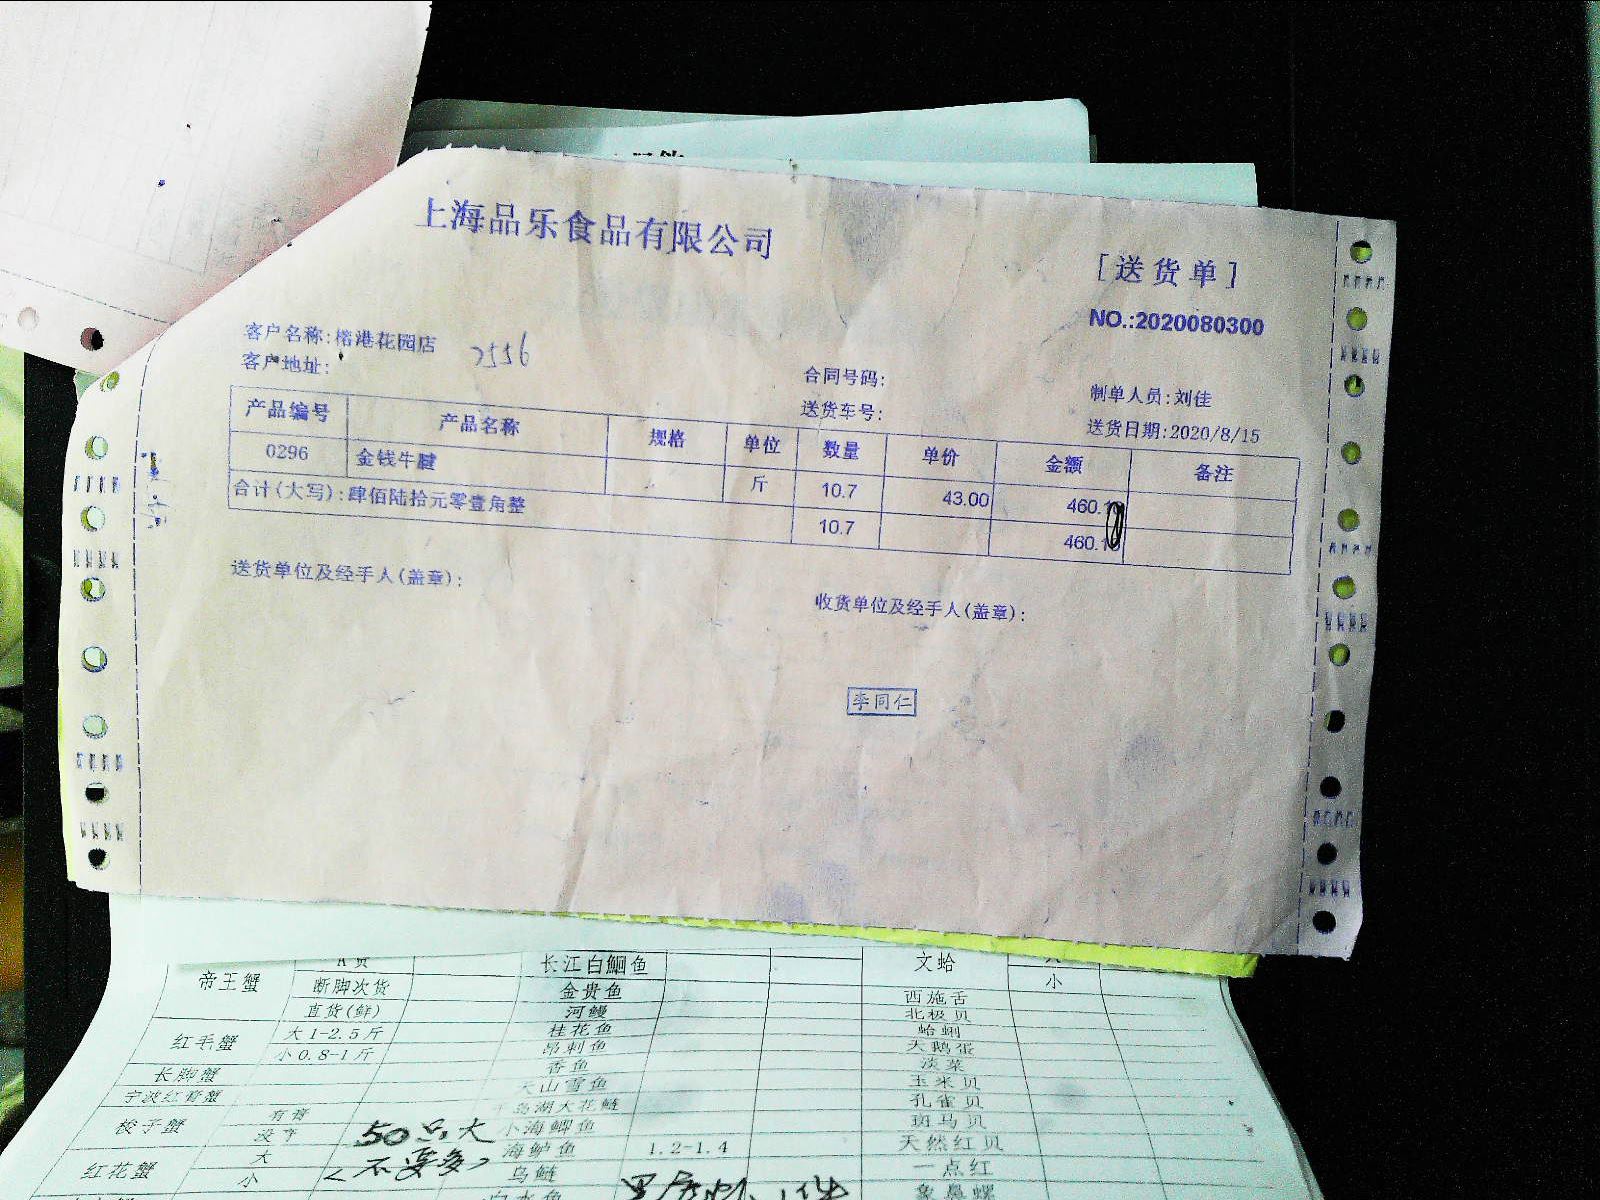 上海品乐食品有限公司
[送货单]
NO.:2020080300
客户名称:榕港花园店
7556
客户地址:
合同号码:
制单人员:刘佳
送货车号:
送货日期:2020/8/15
产品编号 产品名称 规格 单位 数量 单价 金额 备注
0296 金钱牛腱 斤 10.7 43.00 460.10
合计(大写):肆佰陆拾元零壹角整 10.7 460.10
送货单位及经手人(盖章):
收货单位及经手人(盖章):
李同仁
帝王蟹 长江白鮰鱼 文蛤
断脚次货 金贵鱼 小
直货(鲜) 河鳗 西施舌
红毛蟹 大1-2.5斤 桂花鱼 北极贝
小0.8-1斤 昂刺鱼 蛤蜊
长脚蟹 香鱼 天鹅蛋
宁波红膏蟹 淡菜
梭子蟹 有膏 千岛湖大花鲢 玉米贝
50只大 小海鲫鱼 孔雀贝
红花蟹 大 海鲈鱼 1.2-1.4 斑马贝
小 <不要多> 乌鲢 天然红贝
一点红
象鼻螺